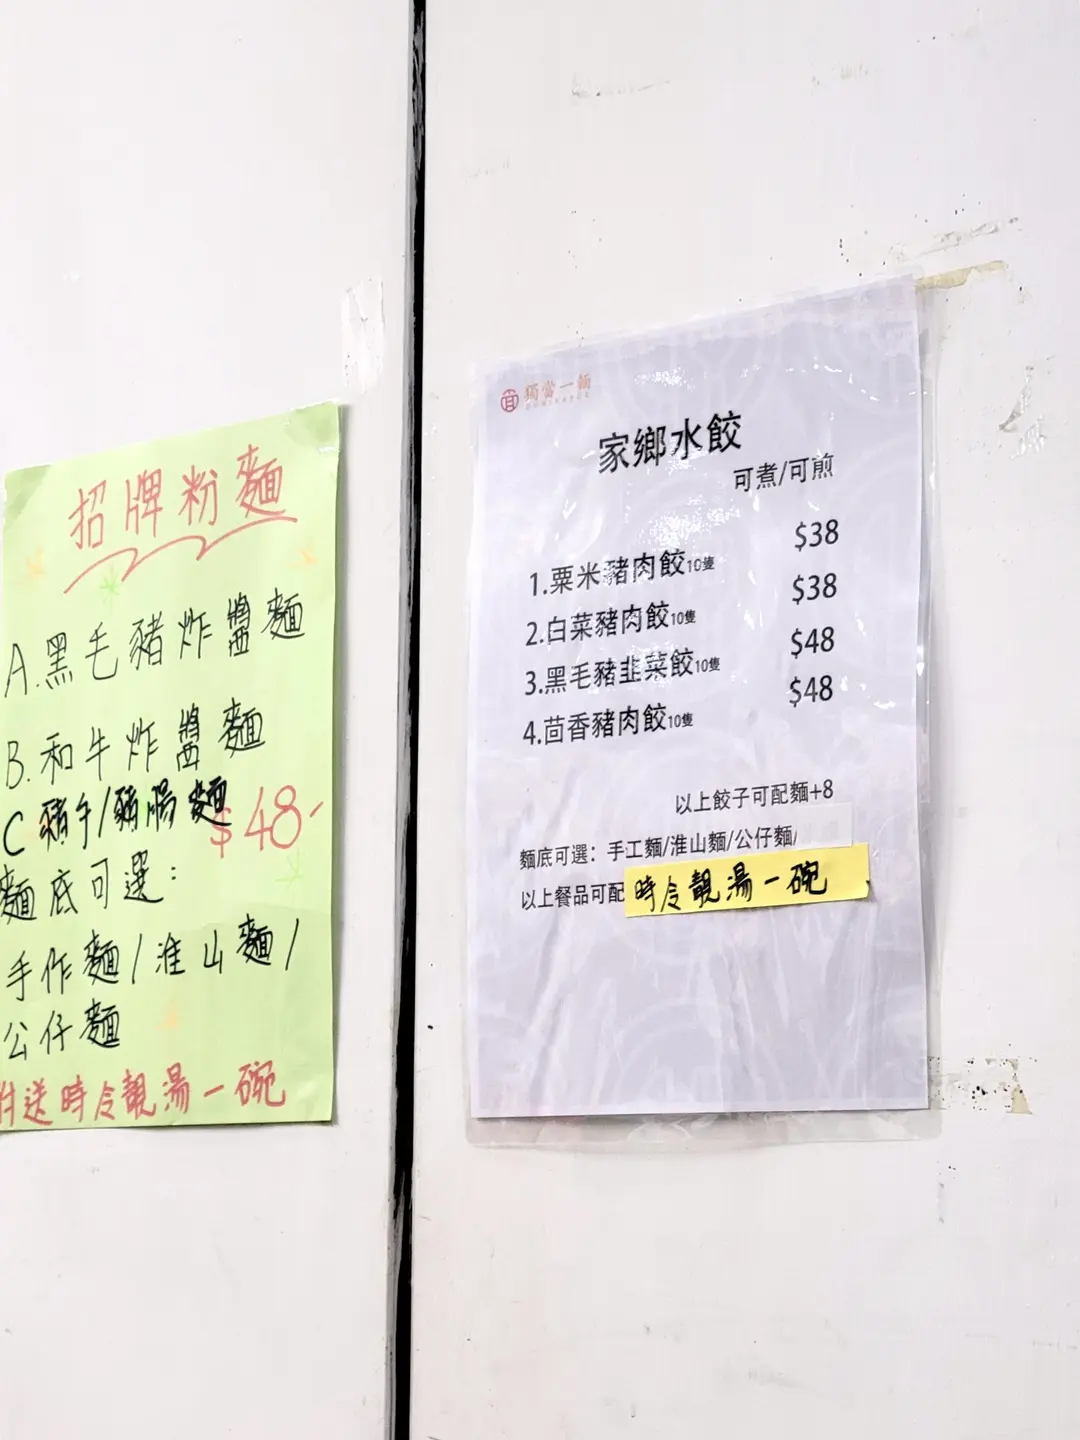 招牌粉麵
A.黑毛豬炸醬麵
B.和牛炸醬麵
C豬手/豬腸麵
$48-
麵底可選:
手作麵/淮山麵/
公仔麵
附送時令靚湯一碗
獨當一麵
家鄉水餃
可煮/可煎
1.粟米豬肉餃10隻 $38
2.白菜豬肉餃10隻 $38
3.黑毛豬韭菜餃10隻 $48
4.茴香豬肉餃10隻 $48
以上餃子可配麵+8
麵底可選：手工麵/淮山麵/公仔麵/
以上餐品可配時令靚湯一碗